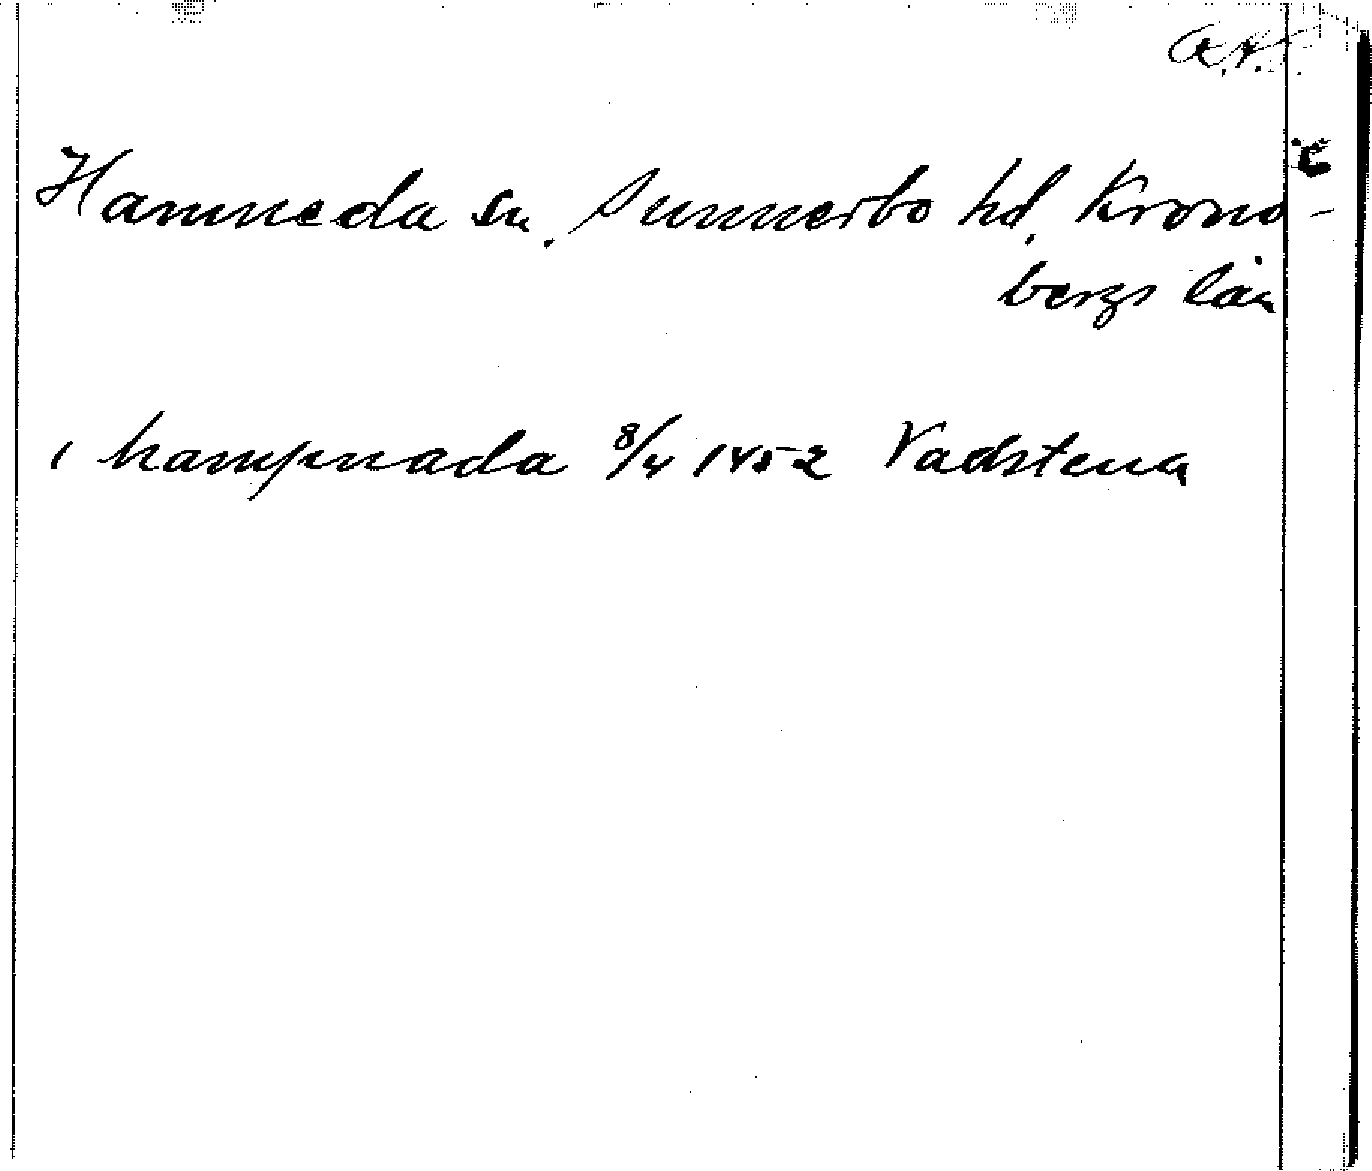 Hamneda sn. Sunnerbo hd. Krono-
bergs län
i hampnada 8/4 1452 Vadstena